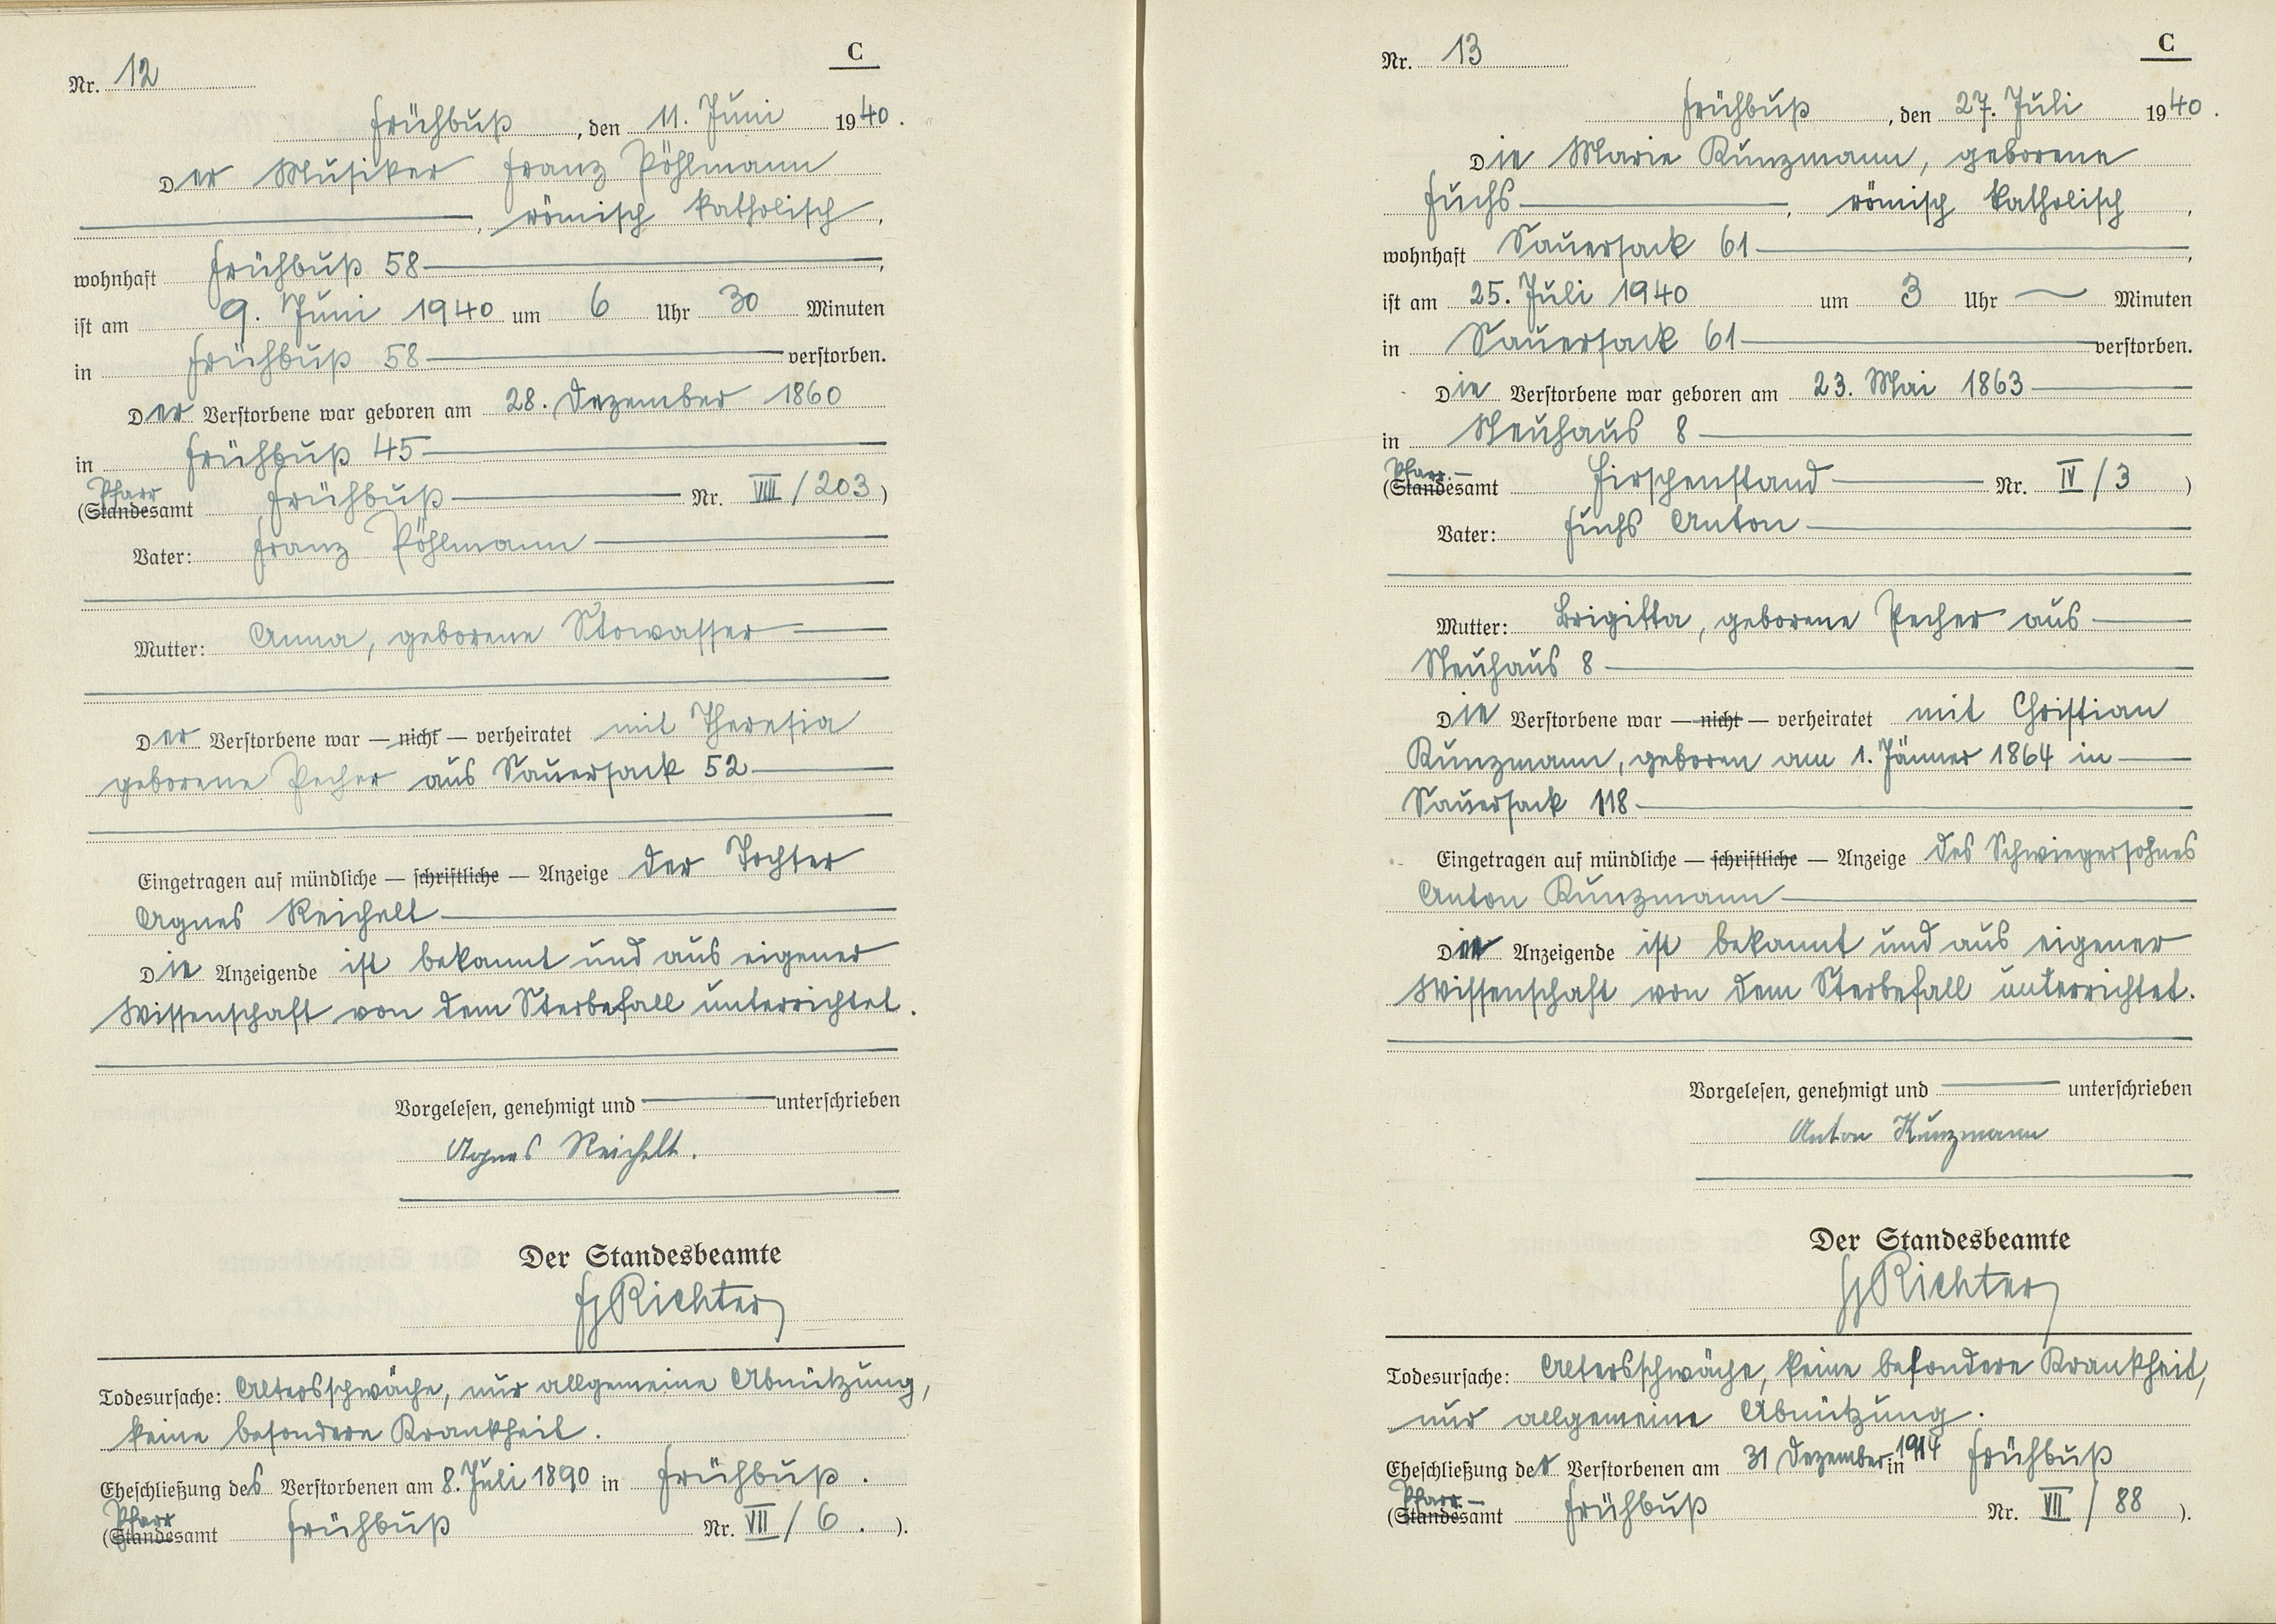 C
Nr. 12
Frühbuß, den 11. Juni 1940.
Der Musiker Franz Pöhlmann
, römisch katholisch,
wohnhaft Frühbuß 58
ist am 9. Juni 1940 um 6 Uhr 30 Minuten
in Frühbuß 58 verstorben.
Der Verstorbene war geboren am 28. Dezember 1860
in Frühbuß 45
Pfarr
(Standesamt Frühbuß Nr. VIII / 203)
Vater: Franz Pöhlmann
Mutter: Anna, geborene Stowasser
Der Verstorbene war — nicht — verheiratet mit Theresia
geborene Pecher aus Sauersack 52
Eingetragen auf mündliche — schriftliche — Anzeige der Tochter
Agnes Reichelt
Die Anzeigende ist bekannt und aus eigener
Wissenschaft von dem Sterbefall unterrichtet.
Vorgelesen, genehmigt und unterschrieben
Agnes Reichelt.
Der Standesbeamte
Richter
Todesursache: Altersschwäche, nur allgemeine Abnützung,
keine besondere Krankheit.
Eheschließung des Verstorbenen am 8. Juli 1890 in Frühbuß.
Pfarr
(Standesamt Frühbuß Nr. VII / 6.).
C
Nr. 13
Frühbuß, den 27. Juli 1940.
Die Marie Kunzmann, geborene
Fuchs, römisch katholisch,
wohnhaft Sauersack 61,
ist am 25. Juli 1940 um 3 Uhr — Minuten
in Sauersack 61 verstorben.
Die Verstorbene war geboren am 23. Mai 1863
in Neuhaus 8
Pfarr-
(Standesamt Hirschenstand Nr. IV / 3)
Vater: Fuchs Anton
Mutter: Brigitta, geborene Pecher aus
Neuhaus 8
Die Verstorbene war — nicht — verheiratet mit Christian
Kunzmann, geboren am 1. Jänner 1864 in
Sauersack 118
Eingetragen auf mündliche — schriftliche — Anzeige des Schwiegersohnes
Anton Kunzmann
Anzeigende ist bekannt und aus eigener
Wissenschaft von dem Sterbefall unterrichtet.
Vorgelesen, genehmigt und unterschrieben
Anton Kunzmann
Der Standesbeamte
Richter
Todesursache: Altersschwäche, keine besondere Krankheit,
nur allgemeine Abnützung.
Eheschließung der Verstorbenen am 31 Dezember 1914 in Frühbuß
Pfarr-
(Standesamt Frühbuß Nr. VII / 88).